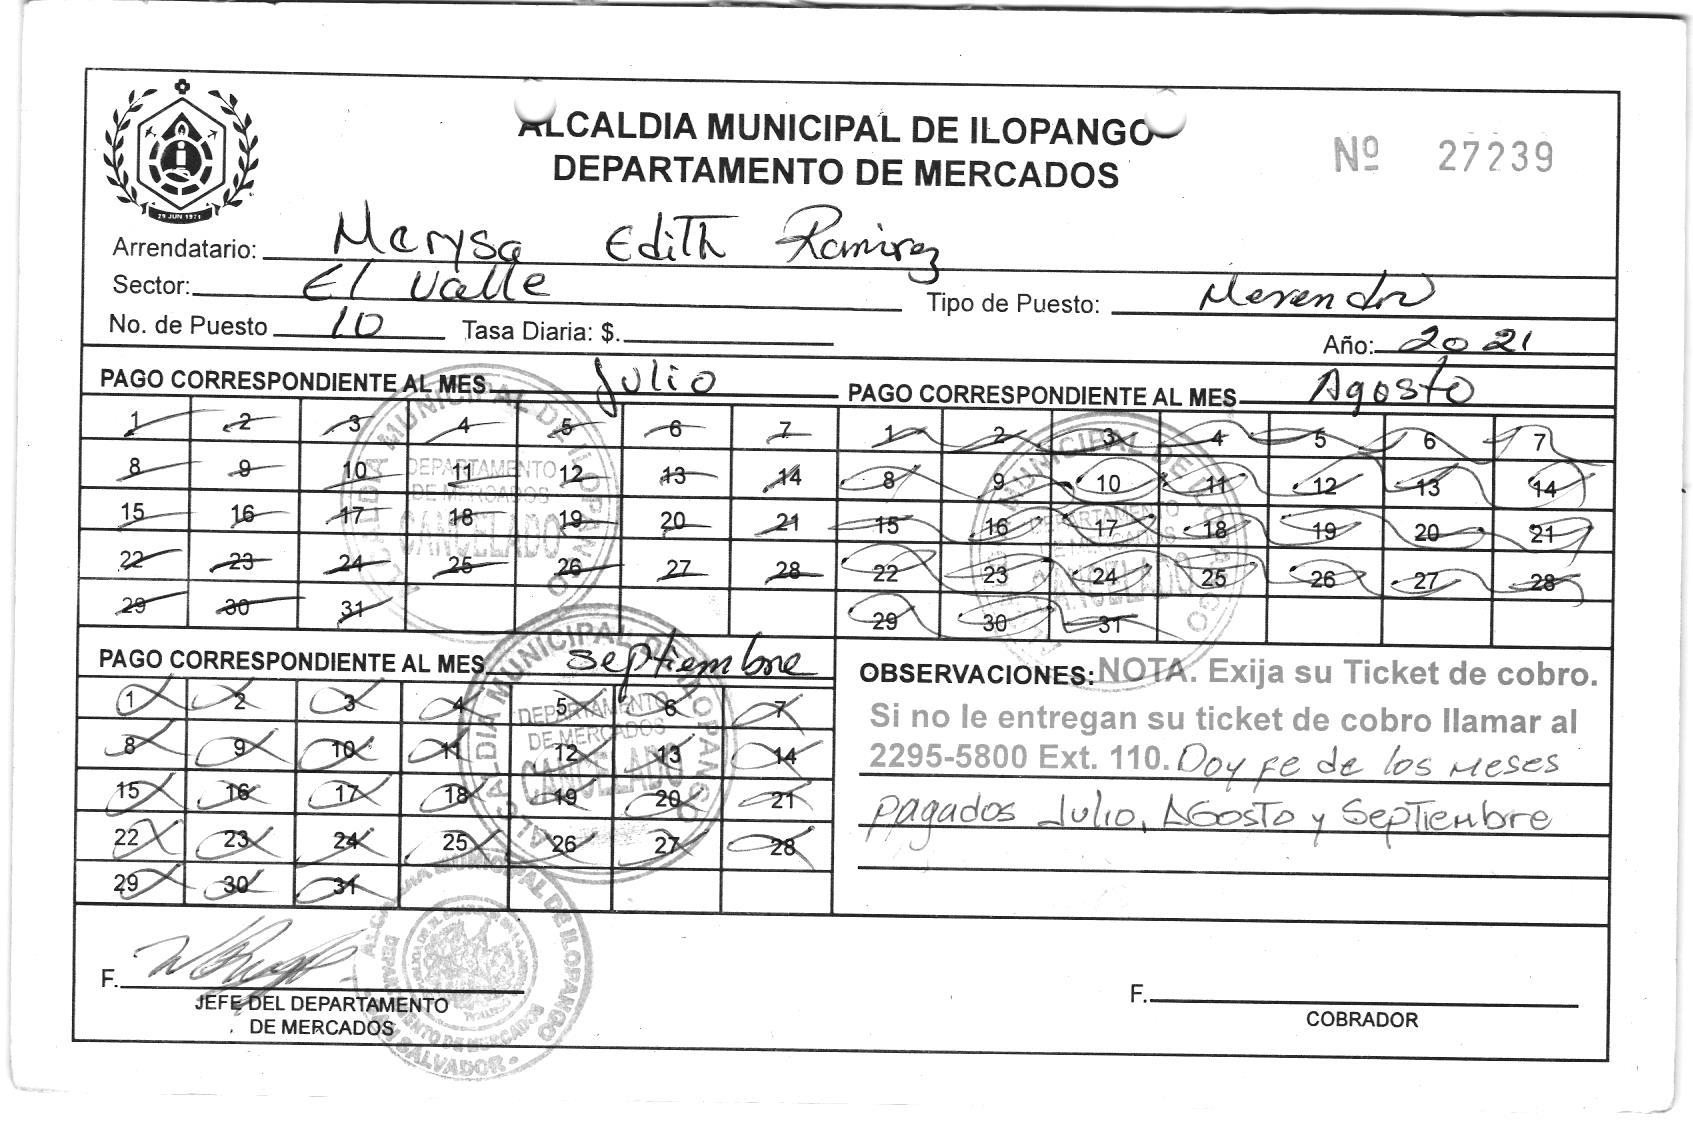 ALCALDIA MUNICIPAL DE ILOPANGO
DEPARTAMENTO DE MERCADOS
Nº 27239
29 JUN 1971
Arrendatario: Marysa Edith Ramirez
Sector: El Valle
Tipo de Puesto: Merendr
No. de Puesto 10 Tasa Diaria: $.
Año: 2021
PAGO CORRESPONDIENTE AL MES Julio
1 2 3 4 5 6 7
8 9 10 11 12 13 14
15 16 17 18 19 20 21
22 23 24 25 26 27 28
29 30 31
ALCALDIA MUNICIPAL DE ILOPANGO
DEPARTAMENTO
DE MERCADOS
CANCELADO
PAGO CORRESPONDIENTE AL MES Agosto
1 2 3 4 5 6 7
8 9 10 11 12 13 14
15 16 17 18 19 20 21
22 23 24 25 26 27 28
29 30 31
MUNICIPAL DE ILOPANGO
DEPARTAMENTO
DE MERCADOS
CANCELADO
PAGO CORRESPONDIENTE AL MES septiembre
1 2 3 4 5 6 7
8 9 10 11 12 13 14
15 16 17 18 19 20 21
22 23 24 25 26 27 28
29 30 31
ALCALDIA MUNICIPAL DE ILOPANGO
DEPARTAMENTO
DE MERCADOS
CANCELADO
OBSERVACIONES: NOTA. Exija su Ticket de cobro.
Si no le entregan su ticket de cobro llamar al
2295-5800 Ext. 110. Doy fe de los meses
pagados Julio, AGosto y Septiembre
F.
JEFE DEL DEPARTAMENTO
DE MERCADOS
ALCALDIA MUNICIPAL DE ILOPANGO
DEPARTAMENTO DE MERCADOS
SALVADOR
F.
COBRADOR